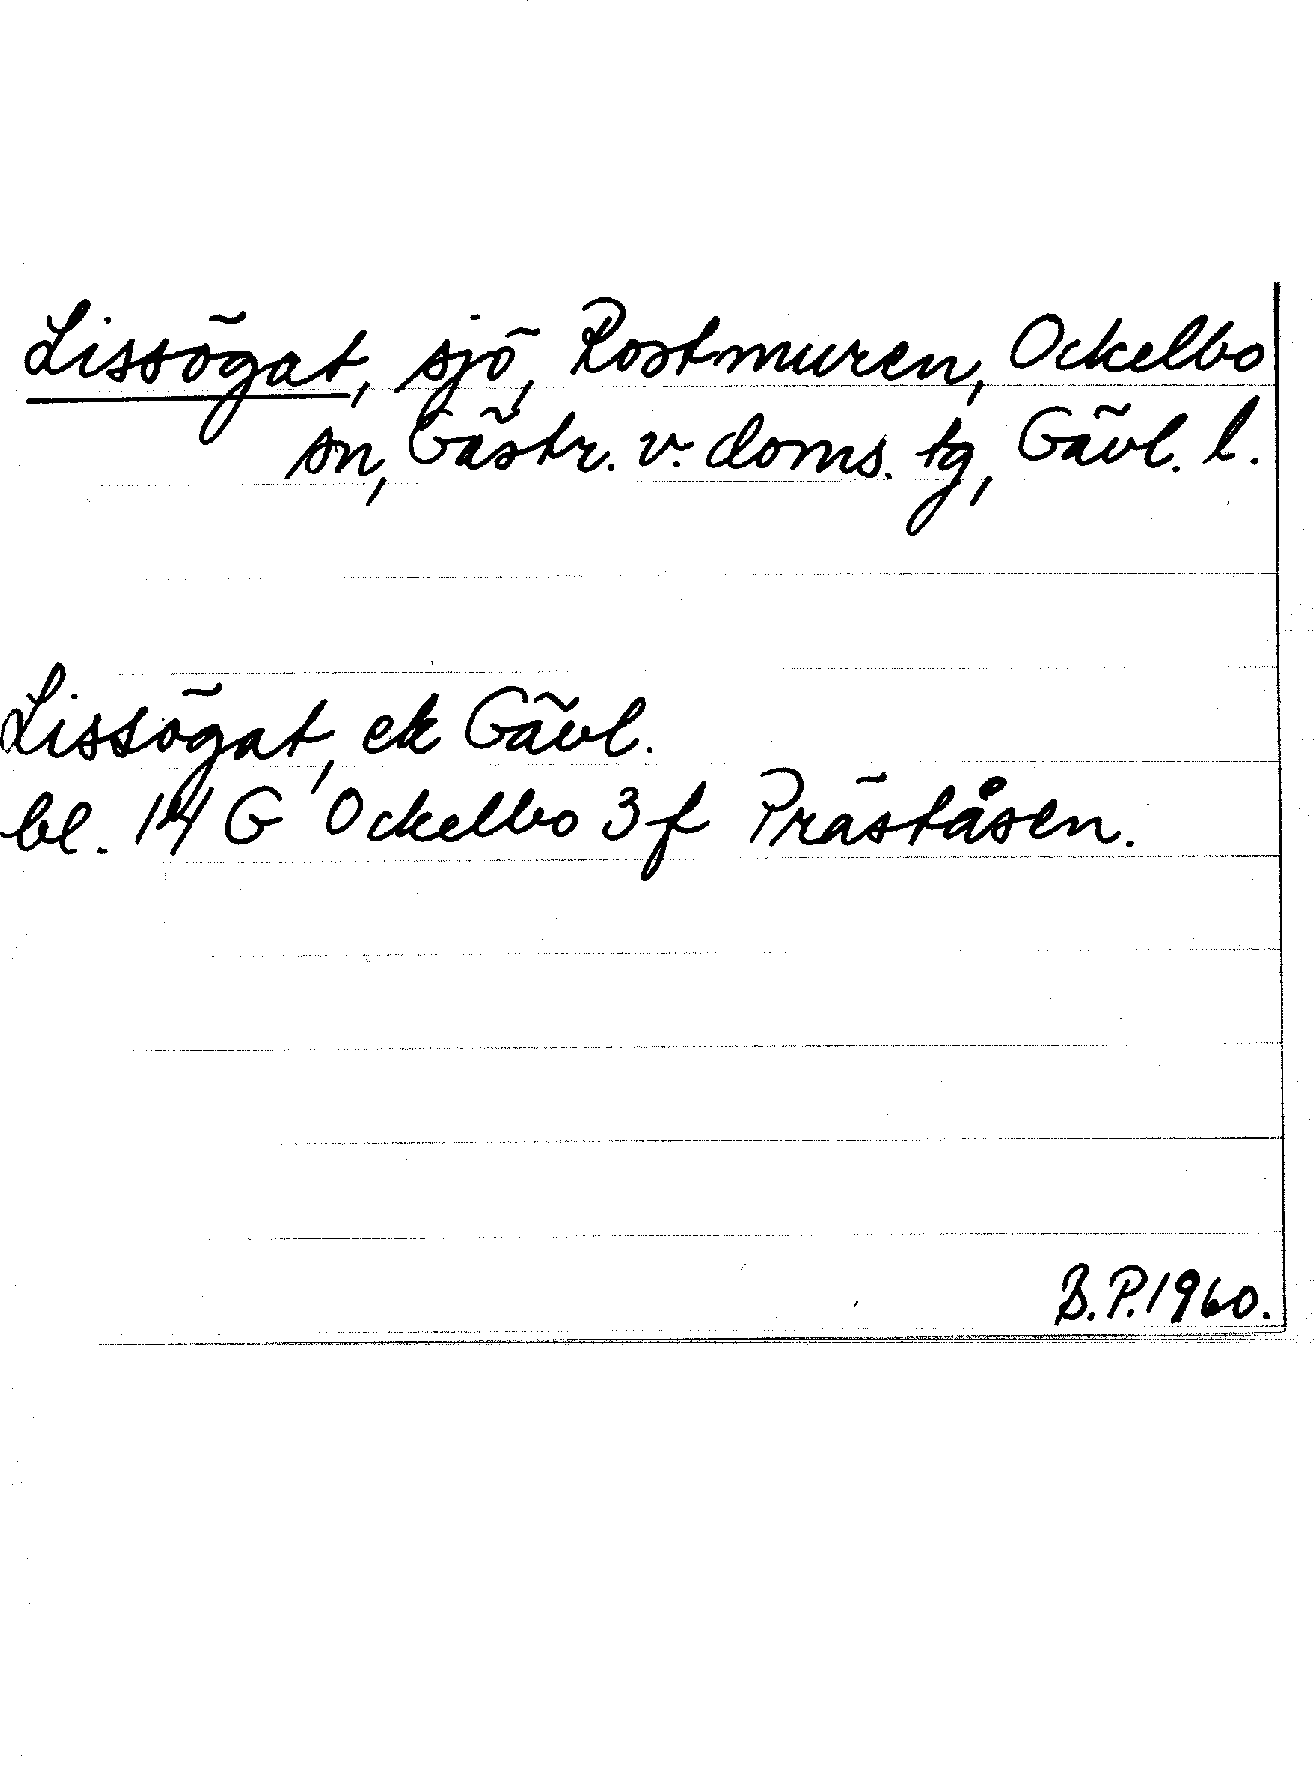 Lissögat, sjö, Rostmuren, Ockelbo
sn, Gästr. v. doms. tg, Gävl. l.
Lissögat, ek Gävl.
bl. 14 G Ockelbo 3 f Präståsen.
B.P. 1960.